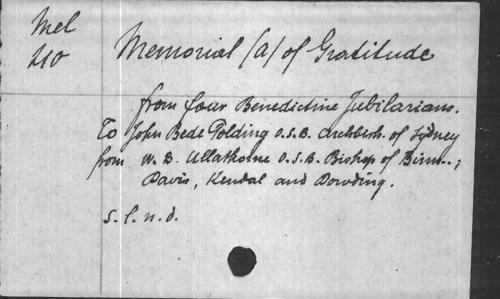 Mel
210
Memorial (a) of Gratitude
from four Benedictine Jubilarians.
To John Bede Polding O.S.B. Archbish. of Sydney
from W. B. Ullathorne O.S.B. Bishop of Birm.;
Davis, Kendal and Dowding.
s.l.n.d.